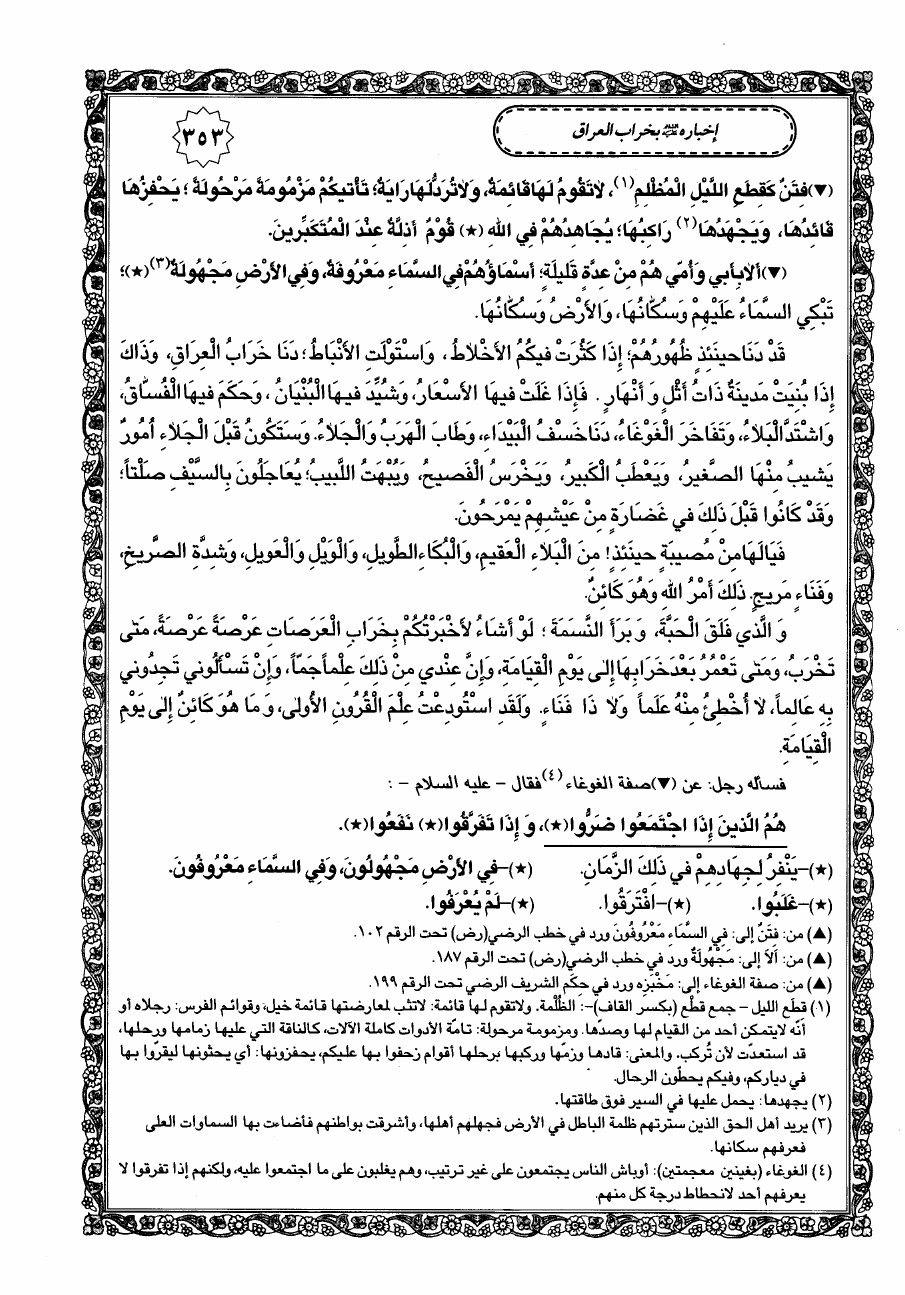 إخباره عليه السلام بخراب العراق
٣٥٣
(▼)فِتَنٌ كَقِطَعِ اللَّيْلِ الْمُظْلِمِ(١)، لاَتَقُومُ لَهَا قَائِمَةٌ، وَلاَتُرَدُّ لَهَا رَايَةٌ؛ تَأْتيكُمْ مَزْمُومَةً مَرْحُولَةً؛ يَحْفِزُهَا
قَائِدُهَا، وَيَجْهَدُهَا(٢) رَاكِبُهَا؛ يُجَاهِدُهُمْ فِي اللهِ (★) قَوْمٌ أَذِلَّةٌ عِنْدَ الْمُتَكَبِّرينَ.
(▼)أَلاَبِأَبي وَأُمّي هُمْ مِنْ عِدَّةٍ قَليلَةٍ؛ أَسْمَاؤُهُمْ فِي السَّمَاءِ مَعْرُوفَةٌ، وَفِي الأَرْضِ مَجْهُولَةٌ(٣)(★)؛
تَبْكِي السَّمَاءُ عَلَيْهِمْ وَسُكَّانُهَا، وَالأَرْضُ وَسُكَّانُهَا.
قَدْ دَنَا حينَئِذٍ ظُهُورُهُمْ؛ إِذَا كَثُرَتْ فيكُمُ الأَخْلاَطُ، وَاسْتَوْلَتِ الأَنْبَاطُ؛ دَنَا خَرَابُ الْعِرَاقِ، وَذَاكَ
إِذَا بُنِيَتْ مَدينَةٌ ذَاتُ أَثْلٍ وَ أَنْهَارٍ . فَإِذَا غَلَتْ فيهَا الأَسْعَارُ، وَشُيِّدَ فيهَا الْبُنْيَانُ، وَحَكَمَ فيهَا الْفُسَّاقُ،
وَاشْتَدَّ الْبَلاَءُ، وَتَفَاخَرَ الْغَوْغَاءُ، دَنَا خَسْفُ الْبَيْدَاءِ، وَطَابَ الْهَرَبُ وَالْجَلاَءُ. وَسَتَكُونُ قَبْلَ الْجَلاَءِ أُمُورٌ
يَشيبُ مِنْهَا الصَّغيرُ، وَيَعْطَبُ الْكَبيرُ، وَيَخْرَسُ الْفَصيحُ، وَيُبْهَتُ اللَّبيبُ؛ يُعَاجَلُونَ بِالسَّيْفِ صَلْتاً؛
وَقَدْ كَانُوا قَبْلَ ذَلِكَ في غَضَارَةٍ مِنْ عَيْشِهِمْ يَمْرَحُونَ.
فَيَالَهَا مِنْ مُصيبَةٍ حينَئِذٍ! مِنَ الْبَلاَءِ الْعَقيمِ، وَالْبُكَاءِ الطَّويلِ، وَالْوَيْلِ وَالْعَويلِ، وَشِدَّةِ الصَّريخِ،
وَفَنَاءٍ مَريجٍ. ذَلِكَ أَمْرُ اللهِ وَهُوَ كَائِنٌ.
وَ الَّذي فَلَقَ الْحَبَّةَ، وَ بَرَأَ النَّسَمَةَ؛ لَوْ أَشَاءُ لأَخْبَرْتُكُمْ بِخَرَابِ الْعَرَصَاتِ عَرْصَةً عَرْصَةً، مَتى
تَخْرَبُ، وَمَتى تَعْمُرُ بَعْدَ خَرَابِهَا إِلى يَوْمِ الْقِيَامَةِ، وَإِنَّ عِنْدي مِنْ ذَلِكَ عِلْماً جَمّاً، وَإِنْ تَسْأَلُوني تَجِدُوني
بِهِ عَالِماً، لاَ أُخْطِئُ مِنْهُ عَلَماً وَلاَ ذَا فَنَاءٍ. وَلَقَدِ اسْتُودِعْتُ عِلْمَ الْقُرُونِ الأُولى، وَمَا هُوَ كَائِنٌ إِلى يَوْمِ
الْقِيَامَةِ.
فسأله رجل: عن (▼)صفة الغوغاء(٤) فقال – عليه السلام – :
هُمُ الَّذينَ إِذَا اجْتَمَعُوا ضَرُّوا(★)، وَ إِذَا تَفَرَّقُوا(★) نَفَعُوا(★).
(★)–يَنْفِرُ لِجِهَادِهِمْ في ذَلِكَ الزَّمَانِ. (★)–فِي الأَرْضِ مَجْهُولُونَ، وَفِي السَّمَاءِ مَعْرُوفُونَ.
(★)–غَلَبُوا. (★)–افْتَرَقُوا. (★)–لَمْ يُعْرَفُوا.
(▲) من: فِتَنٌ إلى: فِي السَّمَاءِ مَعْرُوفُونَ ورد في خطب الرضي(رض) تحت الرقم ١٠٢.
(▲) من: أَلاَ إلى: مَجْهُولَةٌ ورد في خطب الرضي(رض) تحت الرقم ١٨٧.
(▲) من: صفة الغوغاء إلى: مَخْبَزِه ورد في حكَم الشريف الرضي تحت الرقم ١٩٩.
(١) قطَع الليل – جمع قطْع (بكسر القاف)–: الظُلْمة. ولاتقوم لها قائمة: لاتثب لمعارضتها قائمة خيل، وقوائم الفرس: رجلاه أو
أنّه لايتمكن أحد من القيام لها وصدّها. ومزمومة مرحولة: تامّة الأدوات كاملة الآلات، كالناقة التي عليها زمامها ورحلها،
قد استعدّت لأن تُركب. والمعنى: قادها وزمّها وركبها برحلها أقوام زحفوا بها عليكم، يحفزونها: أي يحثونها ليقرّوا بها
في دياركم، وفيكم يحطّون الرحال.
(٢) يجهدها: يحمل عليها في السير فوق طاقتها.
(٣) يريد أهل الحق الذين سترتهم ظلمة الباطل في الأرض فجهلهم أهلها، وأشرقت بواطنهم فأضاءت بها السماوات العلى
فعرفهم سكانها.
(٤) الغوغاء (بغينين معجمتين): أوباش الناس يجتمعون على غير ترتيب، وهم يغلبون على ما اجتمعوا عليه، ولكنهم إذا تفرقوا لا
يعرفهم أحد لانحطاط درجة كل منهم.